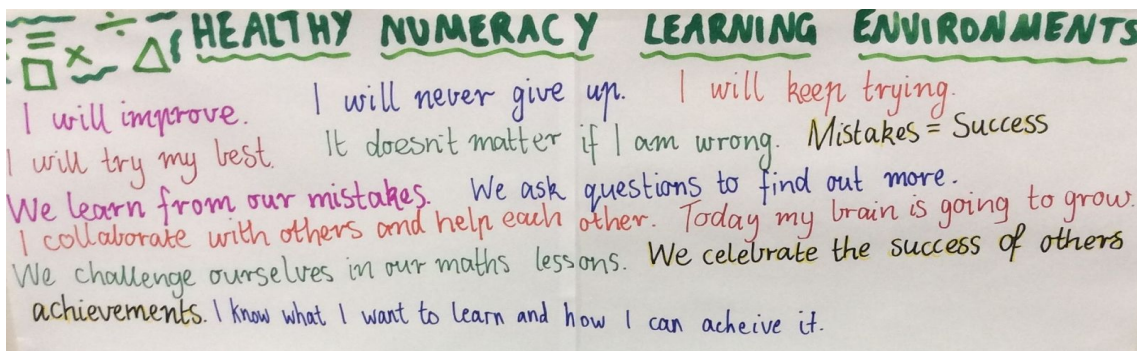 HEALTHY NUMERACY LEARNING ENVIRONMENTS
I will improve. I will never give up. I will keep trying.
I will try my best. It doesn't matter if I am wrong. Mistakes = Success
We learn from our mistakes. We ask questions to find out more.
I collaborate with others and help each other. Today my brain is going to grow.
We challenge ourselves in our maths lessons. We celebrate the success of others
achievements. I know what I want to learn and how I can acheive it.